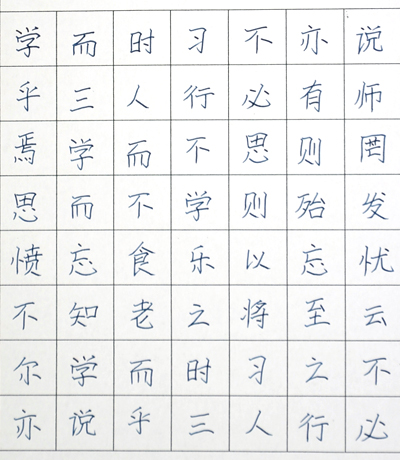 学而时习不亦说
乎三人行必有师
焉学而不思则罔
思而不学则殆发
愤忘食乐以忘忧
不知老之将至云
尔学而时习之不
亦说乎三人行必